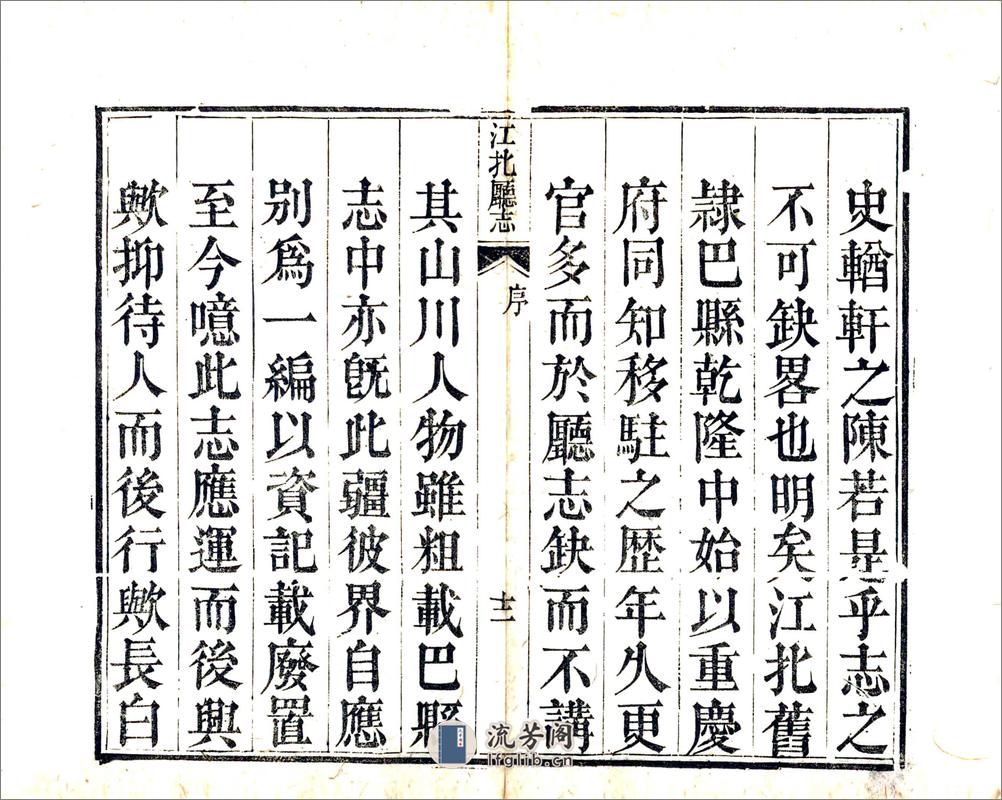 史輶軒之陳若是乎志之
不可缺畧也明矣江北舊
隷巴縣乾隆中始以重慶
府同知移駐之歷年久更
官多而於廳志缺而不講
江北廳志
序
十二
其山川人物雖粗載巴縣
志中亦旣此疆彼界自應
别爲一編以資記載廢置
至今噫此志應運而後興
歟抑待人而後行歟長白
流芳阁
lfglib.cn